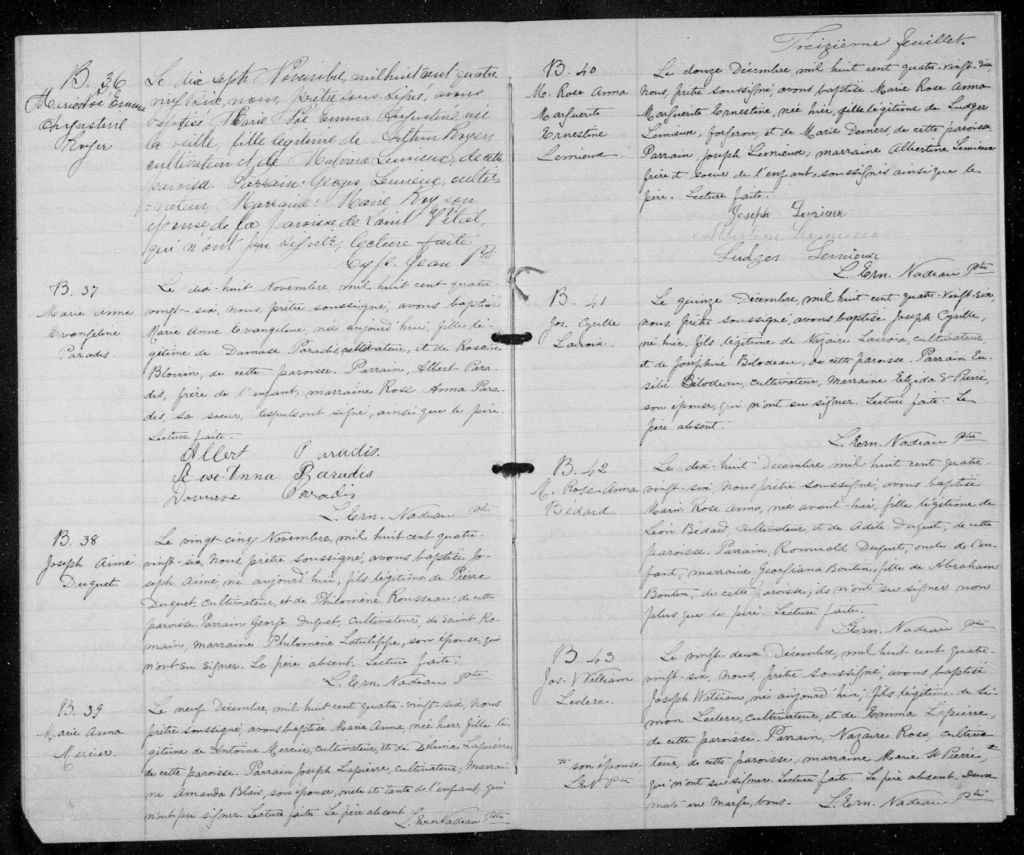 B. 36
Augustine
Roger
Le dix sept Novembre, mil huit cent quatre
vingt six, nous, prêtre soussigné, avons
baptisé Marie Emma Augustine née
la veille, fille légitime de Arthur Roger,
cultivateur et de Malvina Lemieux, de cette
paroisse. Parrain: Georges Lemieux, culti-
vateur, Marraine: Marie Roy son
épouse de la paroisse de Saint Vital,
qui n'ont pu signer, lecture faite.
Ptre
B. 37
Marie Anne
Evangeline
Paradis.
Le dix-huit Novembre, mil huit cent quatre-
vingt-six, nous, prêtre soussigné, avons baptisé
Marie Anne Evangeline, née aujourd'hui, fille lé-
gitime de Damase Paradis cultivateur, et de Rosalie
Blouin, de cette paroisse. Parrain, Albert Para-
dis, frère de l'enfant, marraine Rose Anna Para-
dis, sa soeur, lesquels ont signé, ainsi que le père.
Lecture faite.
Albert Paradis
Rose-Anna Paradis
Paradis
L. Ern. Nadeau Ptre
B. 38
Joseph Aimé
Duguet.
Le vingt-cinq Novembre, mil huit cent quatre-
vingt-six, nous prêtre soussigné, avons baptisé Jo-
seph Aimé, né aujourd'hui, fils légitime de Pierre
Duguet, cultivateur, et de Philomène Rousseau, de cette
paroisse. Parrain George Duguet, cultivateur, de Saint Ro-
main, marraine Philomène Latulippe, son épouse, qui
n'ont su signer. Le père absent. Lecture faite.
L. Ern. Nadeau Ptre
B. 39
Marie Anna
Mercier.
Le neuf Décembre, mil huit cent quatre-vingt-six, nous
prêtre soussigné, avons baptisé Marie Anna, née hier, fille lé-
gitime de Antoine Mercier, cultivateur, et de Delima Lapierre
de cette paroisse. Parrain Joseph Lapierre, cultivateur, Marrai-
ne Amanda Blais, son épouse, oncle et tante de l'enfant, qui
n'ont pu signer. Lecture faite. Le père absent.
L. Ern Nadeau Ptre
Treizième feuillet.
B. 40
M. Rose Anna
Marguerite
Ernestine
Lemieux
Le douze Décembre, mil huit cent quatre-vingt-six,
nous, prêtre soussigné, avons baptisé Marie Rose Anna
Marguerite Ernestine, née hier, fille légitime de Ludger
Lemieux, forgeron, et de Marie Demers, de cette paroisse.
Parrain, Joseph Lemieux; marraine Albertine Lemieux
frère et soeur de l'enfant, soussignés ainsi que le
père. Lecture faite.
Joseph Lemieux
Lemieux
Ludger Lemieux
L. Ern. Nadeau Ptre
B. 41
Jos. Cyrille
Lacroix.
Le quinze Décembre, mil huit cent quatre-vingt-six,
nous, prêtre soussigné, avons baptisé Joseph Cyrille,
né hier, fils légitime de Nazaire Lacroix, cultivateur,
et de Josephine Bilodeau, de cette paroisse. Parrain Eu-
sèbe Bilodeau, cultivateur, Marraine Elzida St Pierre,
son épouse, qui n'ont su signer. Lecture faite. Le
père absent.
L. Ern. Nadeau Ptre
B. 42
M. Rose-Anna
Bédard
Le dix-huit Décembre, mil huit cent quatre-
vingt-six, nous prêtre soussigné, avons baptisé
Marie Rose Anna, née avant-hier, fille légitime de
Léon Bédard, cultivateur, et de Adèle Duguet, de cette
paroisse. Parrain, Romuald Duguet, oncle de l'en-
fant; marraine Georgiana Boutin, fille de Abraham
Boutin, de cette paroisse; ils n'ont su signer non
plus que le père. Lecture faite.
L. Ern. Nadeau Ptre
B. 43
Jos. William
Leclerc.
Le vingt-deux Décembre, mil huit cent quatre-
vingt-six, nous, prêtre soussigné, avons baptisé
Joseph William, né aujourd'hui, fils légitime de Si-
mon Leclerc, cultivateur, et de Emma Lapierre,
de cette paroisse. Parrain, Nazaire Rose, cultiva-
teur, de cette paroisse, marraine Marie St Pierre,
qui n'ont su signer. Lecture faite. Le père absent. Deux
mots en marge, bons. L. Ern. Nadeau Ptre
son épouse
L. E. N. Ptre